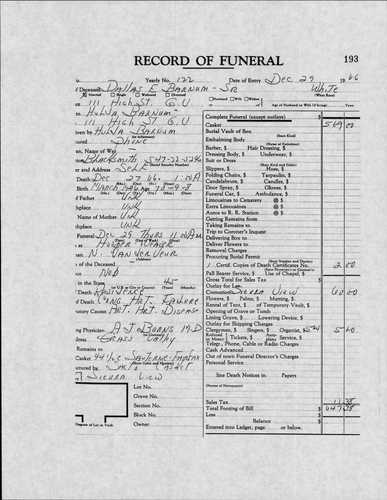 RECORD OF FUNERAL 193
Yearly No. 122 Date of Entry Dec 29 1966
Deceased DALLAS E BARNUM - SR White
Married Single Widowed Divorced Husband Wife Widow (What Race)
111 High St. G.V. or Age of Husband or Wife (if living) Years
HULDA BARNUM
111 High St G.V.
Given by HULDA BARNUM
SAME
Name of War
Blacksmith 547-22-
Social Security Number
or and Address SELF
Death Dec 27 66. 1:00 A
Birth MARCH Age 90-9-8
Father UNK
Birthplace UNK
Name of Mother UNK
Birthplace UNK
Funeral Dec 29 Thurs 11:00 AM.
at HOOPER WEAVER
N. VANDERVEUR
of the Deceased
NED
in the State 45
Death RESIDENCE
of Death Cong. Hrt. Failure
Causes Art. Hrt. Disease
ing Physician A J BURNS MD
ress GRASS VALLEY
Remains to
Casket
SACTO CASKET
SIERRA VIEW
Lot No.
Grave No.
Section No.
Block No.
Diagram of Lot or Vault Owner
Complete Funeral (except outlays) $
Casket 569.00
Burial Vault of Box
(State Kind)
Embalming Body
(Name of Embalmer)
Barber, $ Hair Dressing, $
Dressing Body, $ Underwear, $
Suit or Dress
(State Kind and Color)
Slippers, $ Hose, $
Folding Chairs, $ Tarpaulin, $
Candelabrum, $ Candles, $
Door Spray, $ Gloves, $
Funeral Car, $ Ambulance, $
Limousines to Cemetery @ $
Extra Limousines @ $
Autos to R. R. Station @ $
Getting Remains from
Taking Remains to
Trip to Coroner's Inquest
Delivering Box to
Deliver Flowers to
Removal Charges
Procuring Burial Permit
(State Number and District)
1 Certif. Copies of Death Certificates No. 2 00
Pall Bearer Service, $ Use of Chapel, $
Gross Total for Sales Tax $
Outlay for Lot
Cremation SIERRA VIEW 60 00
Flowers, $ Palms, $ Matting, $
Rental of Tent, $ of Temporary Vault, $
Opening of Grave or Tomb
Lining Grave, $ Lowering Device, $
Outlay for Shipping Charges
Clergymen, $ Singers, $ Organist, $ 5.00 5 00
Railroad or Motor Tickets, $ Aero-plane Service, $
Telegr., Phone, Cable or Radio Charges
Cash Advanced
Out of town Funeral Director's Charges
Personal Service
line Death Notices in Papers
(Names of Newspapers)
Sales Tax 11 38
Total Footing of Bill $ 647 38
Less $
Balance $
Entered into Ledger, page or below.